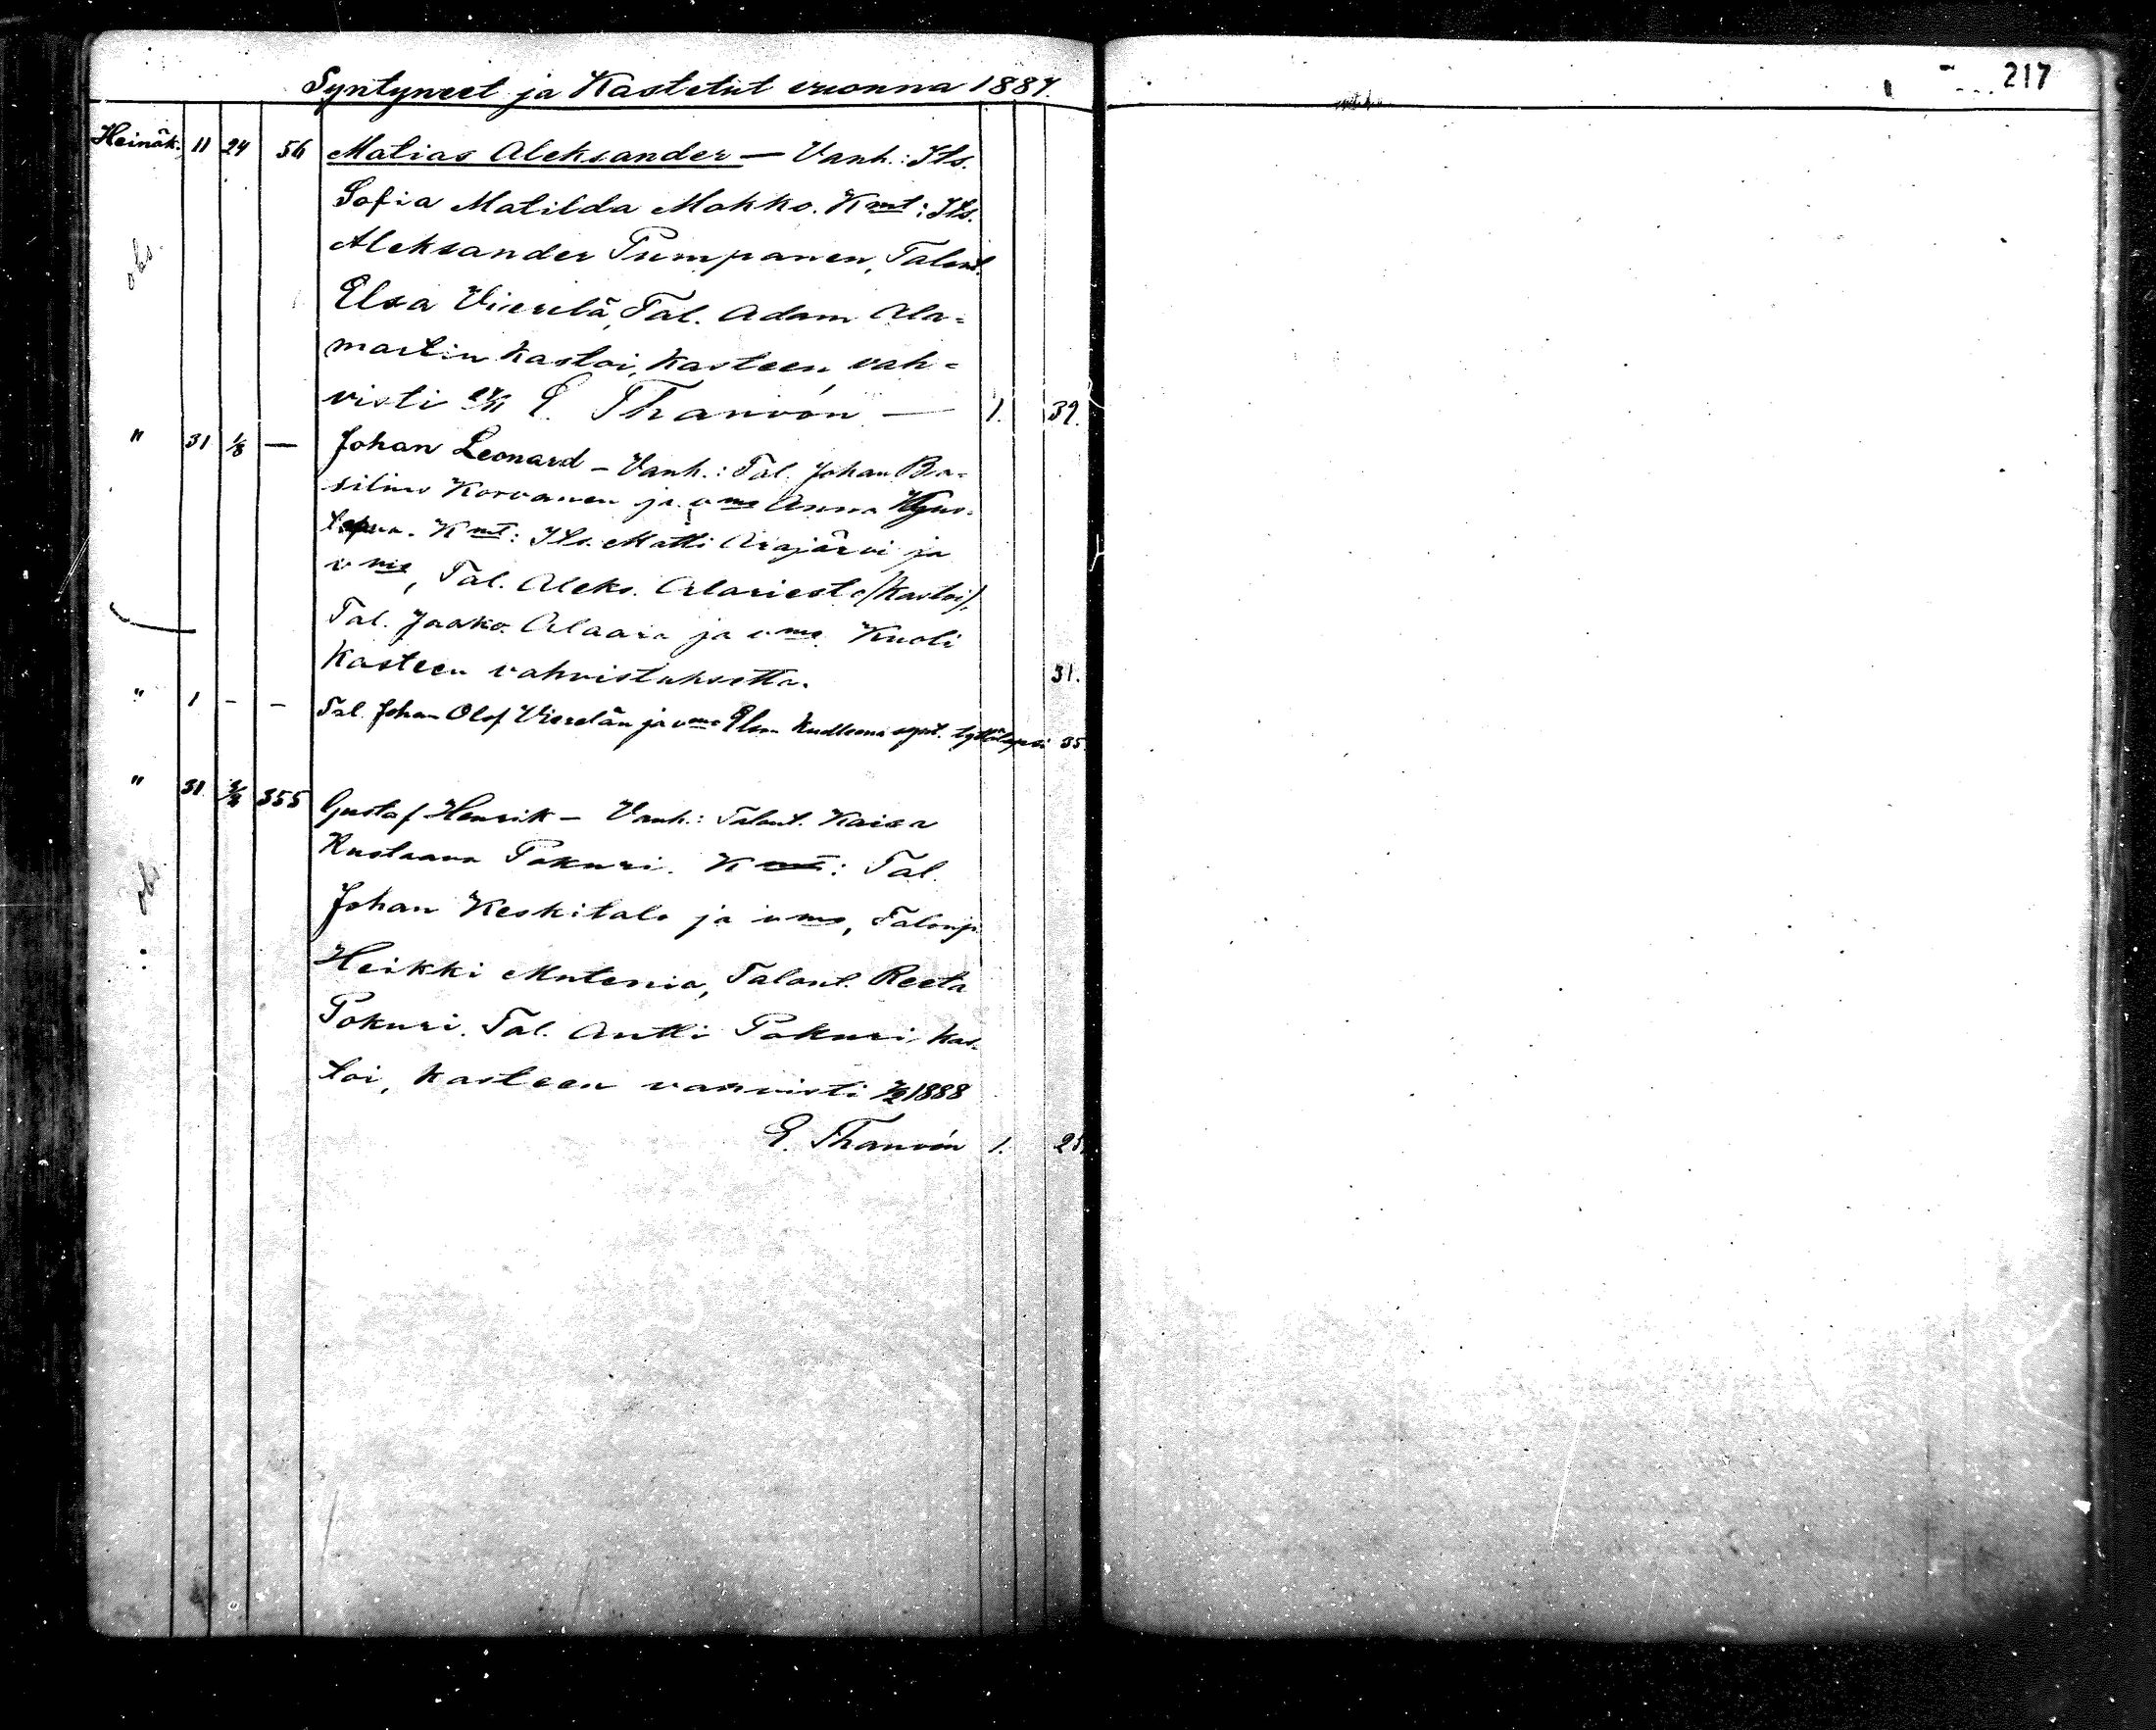 217
Syntyneet ja Kastetut vuonna 1887.
Heinäk. 11 24 56 Matias Aleksander — Vanh.: Its.
Sofia Matilda Mokko. Kmt: Its.
obs. Aleksander Pumpanen, Talont.
Elsa Vierelä, Tal. Adam Ala-
martin kastoi, Kasteen vah-
visti E. Thauvón — 1. 39.
" 31 1/8 — Johan Leonard – Vanh.: Tal. Johan Ba-
silius Korvanen ja vmo Anna
Kmt: Its. Matti Arajärvi ja
vmo, Tal. Aleks. Alariesto (kastoi),
Tal. Jaako Alaara ja vmo. Kuoli
Kasteen vahvistuksetta. 31.
" 1 – – Tal. Johan Olof Vierelän ja vmo Elsan kuolleena synt. tyttölapsi 35
" 31 355 Gustaf Henrik – Vanh.: Talont. Kaisa
Kustaava Pokuri. Kmt: Tal.
obs. Johan Keskitalo ja vmo, Talonp.
Heikki Mutenia, Talont. Reeta
Pokuri. Tal. Antti Pokuri kas-
toi, Kasteen vahvisti 1888
E. Thauvón 1. 25.